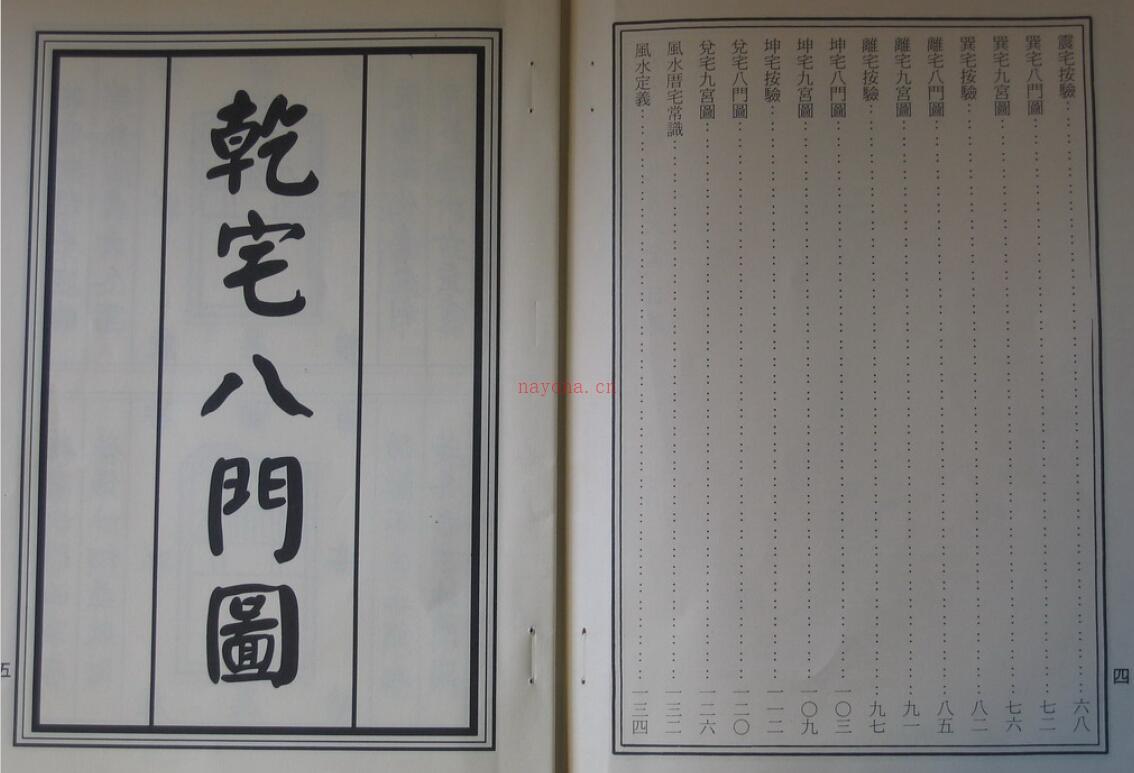 震宅按驗 六八
巽宅八門圖 七二
巽宅九宮圖 七六
巽宅按驗 八二
離宅八門圖 八五
離宅九宮圖 九一
離宅按驗 九七
坤宅八門圖 一〇三
坤宅九宮圖 一〇九
坤宅按驗 一一二
兌宅八門圖 一二〇
兌宅九宮圖 一二六
風水厝宅常識 一三二
風水定義 一三四
四
乾宅八門圖
五
nayona.cn